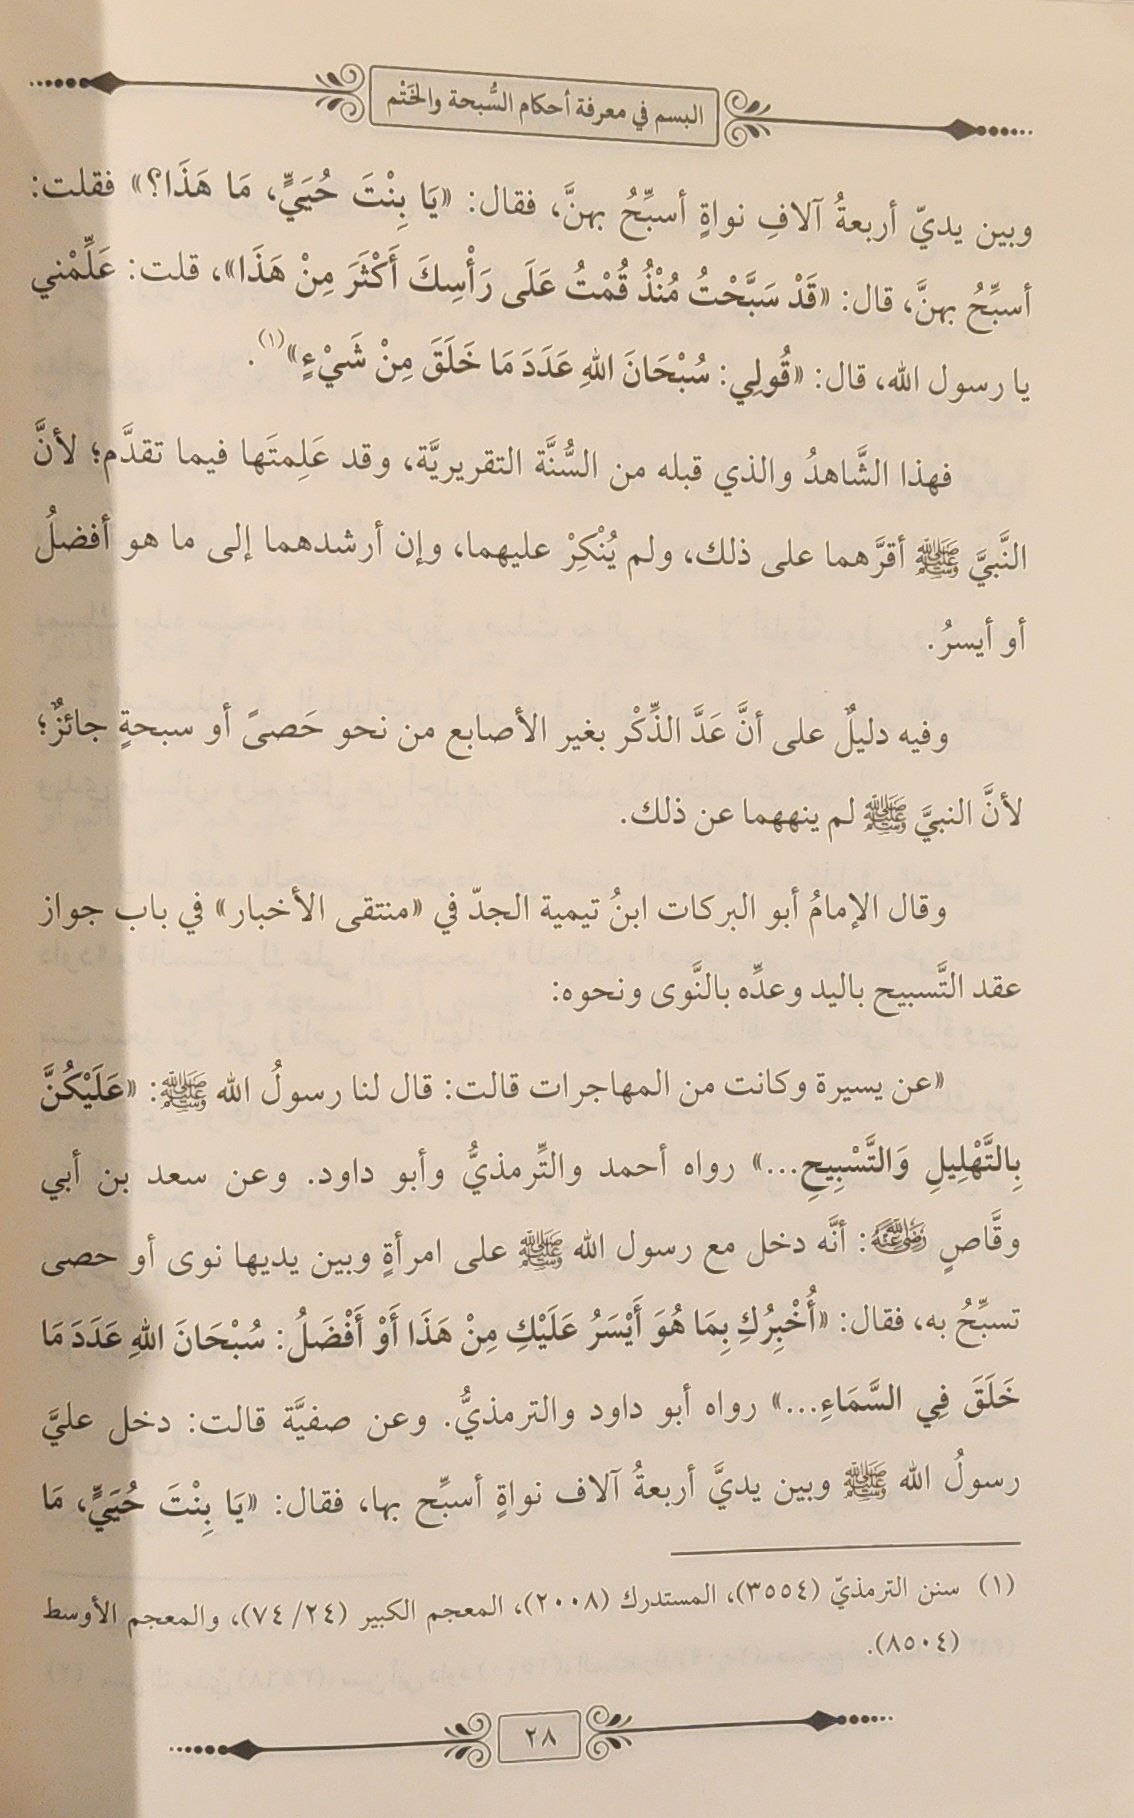 البسم في معرفة أحكام السُّبحة والخَتْم
وبين يديّ أربعةُ آلافِ نواةٍ أسبِّحُ بهنَّ، فقال: «يَا بِنْتَ حُيَيٍّ، مَا هَذَا؟» فقلت:
أسبِّحُ بهنَّ، قال: «قَدْ سَبَّحْتُ مُنْذُ قُمْتُ عَلَى رَأْسِكَ أَكْثَرَ مِنْ هَذَا»، قلت: عَلِّمْني
يا رسول الله، قال: «قُولِي: سُبْحَانَ اللهِ عَدَدَ مَا خَلَقَ مِنْ شَيْءٍ»(١).
فهذا الشَّاهدُ والذي قبله من السُّنَّة التقريريَّة، وقد عَلِمتَها فيما تقدَّم؛ لأنَّ
النَّبيَّ ﷺ أقرَّهما على ذلك، ولم يُنْكِرْ عليهما، وإن أرشدهما إلى ما هو أفضلُ
أو أيسرُ.
وفيه دليلٌ على أنَّ عَدَّ الذِّكْر بغير الأصابع من نحو حَصىً أو سبحةٍ جائزٌ؛
لأنَّ النبيَّ ﷺ لم ينههما عن ذلك.
وقال الإمامُ أبو البركات ابنُ تيمية الجدّ في «منتقى الأخبار» في باب جواز
عقد التَّسبيح باليد وعدِّه بالنَّوى ونحوه:
«عن يسيرة وكانت من المهاجرات قالت: قال لنا رسولُ الله ﷺ: «عَلَيْكُنَّ
بِالتَّهْلِيلِ وَالتَّسْبِيحِ...» رواه أحمد والتِّرمذيُّ وأبو داود. وعن سعد بن أبي
وقَّاصٍ رضي الله عنه: أنَّه دخل مع رسول الله ﷺ على امرأةٍ وبين يديها نوى أو حصى
تسبِّحُ به، فقال: «أُخْبِرُكِ بِمَا هُوَ أَيْسَرُ عَلَيْكِ مِنْ هَذَا أَوْ أَفْضَلُ: سُبْحَانَ اللهِ عَدَدَ مَا
خَلَقَ فِي السَّمَاءِ...» رواه أبو داود والترمذيُّ. وعن صفيَّة قالت: دخل عليَّ
رسولُ الله ﷺ وبين يديَّ أربعةُ آلاف نواةٍ أسبِّح بها، فقال: «يَا بِنْتَ حُيَيٍّ، مَا
(١) سنن الترمذيّ (٣٥٥٤)، المستدرك (٢٠٠٨)، المعجم الكبير (٧٤/٢٤)، والمعجم الأوسط
(٨٥٠٤).
٢٨